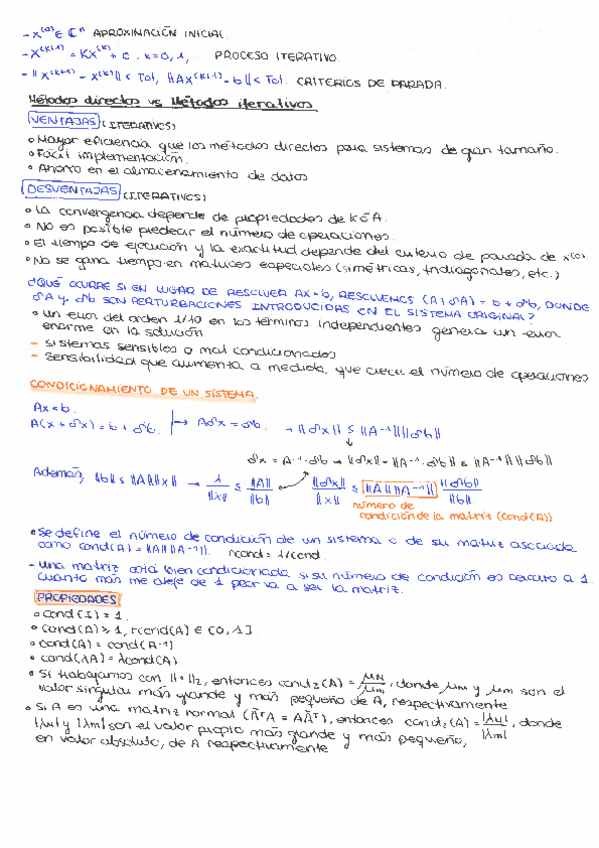 - x^(0) ∈ ℂ^n APROXIMACIÓN INICIAL.
- x^(k+1) = Kx^(k) + c, k=0,1, PROCESO ITERATIVO.
- ||x^(k+1) - x^(k)|| < Tol, ||Ax^(k+1) - b|| < Tol. CRITERIOS DE PARADA.
Métodos directos vs Métodos iterativos.
VENTAJAS (ITERATIVOS)
• Mayor eficiencia que los métodos directos para sistemas de gran tamaño.
• Fácil implementación.
• Ahorro en el almacenamiento de datos
DESVENTAJAS (ITERATIVOS)
• La convergencia depende de propiedades de K ó A.
• No es posible predecir el número de operaciones.
• El tiempo de ejecución y la exactitud depende del criterio de parada de x^(0).
• No se gana tiempo en matrices especiales (simétricas, tridiagonales, etc.)
¿QUÉ OCURRE SI EN LUGAR DE RESOLVER AX=b, RESOLVEMOS (A+δA) = b+δb, DONDE
δA y δb SON PERTURBACIONES INTRODUCIDAS EN EL SISTEMA ORIGINAL?
• un error del orden 1/10 en los términos independientes genera un error
enorme en la solución.
- sistemas sensibles o mal condicionados
- Sensibilidad que aumenta a medida que crece el número de operaciones
CONDICIONAMIENTO DE UN SISTEMA.
Ax=b.
A(x+δx)=b+δb. ↦ Aδx=δb. → ||δx|| ≤ ||A⁻¹|| ||δb||
↓
δx = A⁻¹·δb → ||δx|| = ||A⁻¹·δb|| ≤ ||A⁻¹|| ||δb||
Además, ||b|| ≤ ||A|| ||x|| → 1/||x|| ≤ ||A||/||b|| ||δx||/||x|| ≤ ||A|| ||A⁻¹|| ||δb||/||b||
número de
condición de la matriz (Cond(A))
• Se define el número de condición de un sistema o de su matriz asociada
como cond(A) = ||A|| ||A⁻¹||. rcond = 1/cond.
- una matriz está bien condicionada si su número de condición es cercano a 1.
Cuanto más me aleje de 1 peor va a ser la matriz.
PROPIEDADES
• Cond(I) = 1.
• Cond(A) ≥ 1, rcond(A) ∈ [0,1]
• cond(A) = cond(A⁻¹)
• cond(λA) = λcond(A)
• Si trabajamos con ||•||₂, entonces cond₂(A) = μM/μm, donde μM y μm son el
valor singular más grande y más pequeño de A, respectivamente
• Si A es una matriz normal (ĀᵀA = AĀᵀ), entonces cond₂(A) = |λM|/|λm|, donde
|λM| y |λm| son el valor propio más grande y más pequeño,
en valor absoluto, de A respectivamente